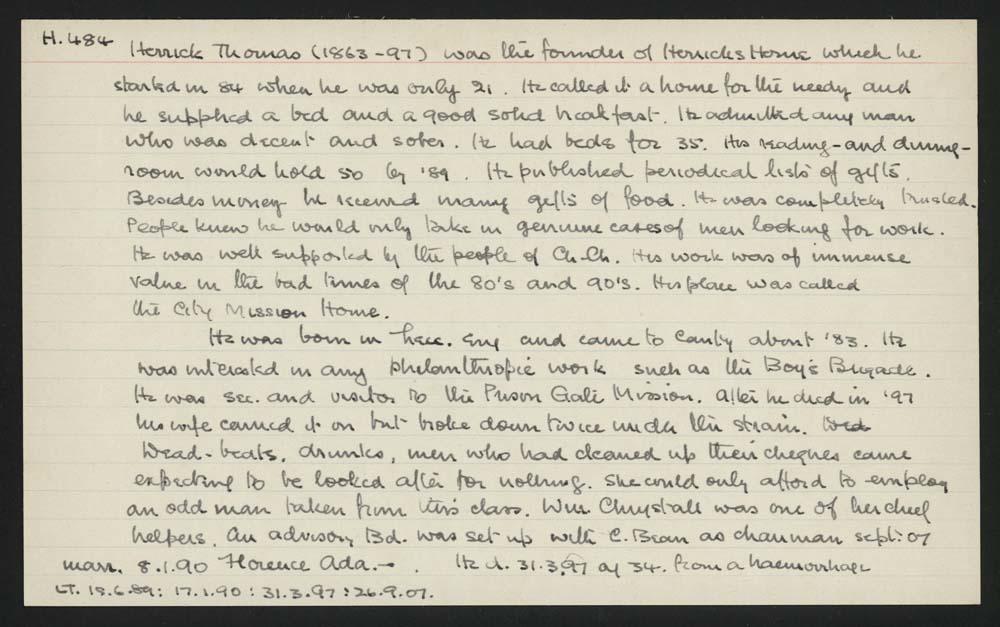 H.484
Herrick Thomas (1863-97) was the founder of Herricks Home which he
started in 84 when he was only 21. He called it a home for the needy and
he supplied a bed and a good solid breakfast. He admitted any man
who was decent and sober. He had beds for 35. His reading-and dining-
room would hold 50 by '89. He published periodical lists of gifts.
Besides money he received many gifts of food. He was completely trusted.
People knew he would only take in genuine cases of men looking for work.
He was well supported by the people of Ch-Ch. His work was of immense
value in the bad times of the 80's and 90's. His place was called
the City Mission Home.
He was born in Leic. Eng and came to Canty about '83. He
was interested in any philanthropic work such as the Boy's Brigade.
He was sec. and visitor to the Prison Gate Mission. After he died in '97
his wife carried it on but broke down twice under the strain.
Dead-beats, drunks, men who had cleaned up their cheques came
expecting to be looked after for nothing. She could only afford to employ
an odd man taken from this class. Wm Chrystall was one of her chief
helpers. An advisory Bd. was set up with C. Bean as chairman sept: 07
marr. 8.1.90 Florence Ada. - . He d. 31.3.97 ag 34. from a haemorrhage
LT. 18.6.89: 17.1.90: 31.3.97: 26.9.07.